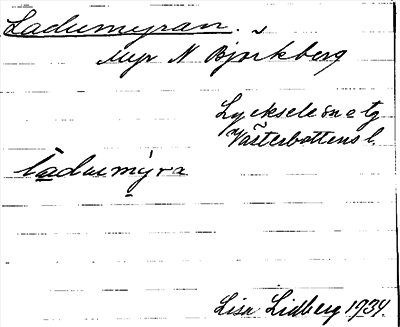 Ladumyran.
Myr N Bjorkberg
Lycksele sn etg
Västerbottens l.
ladumýra
Lisa Lidberg 1934.